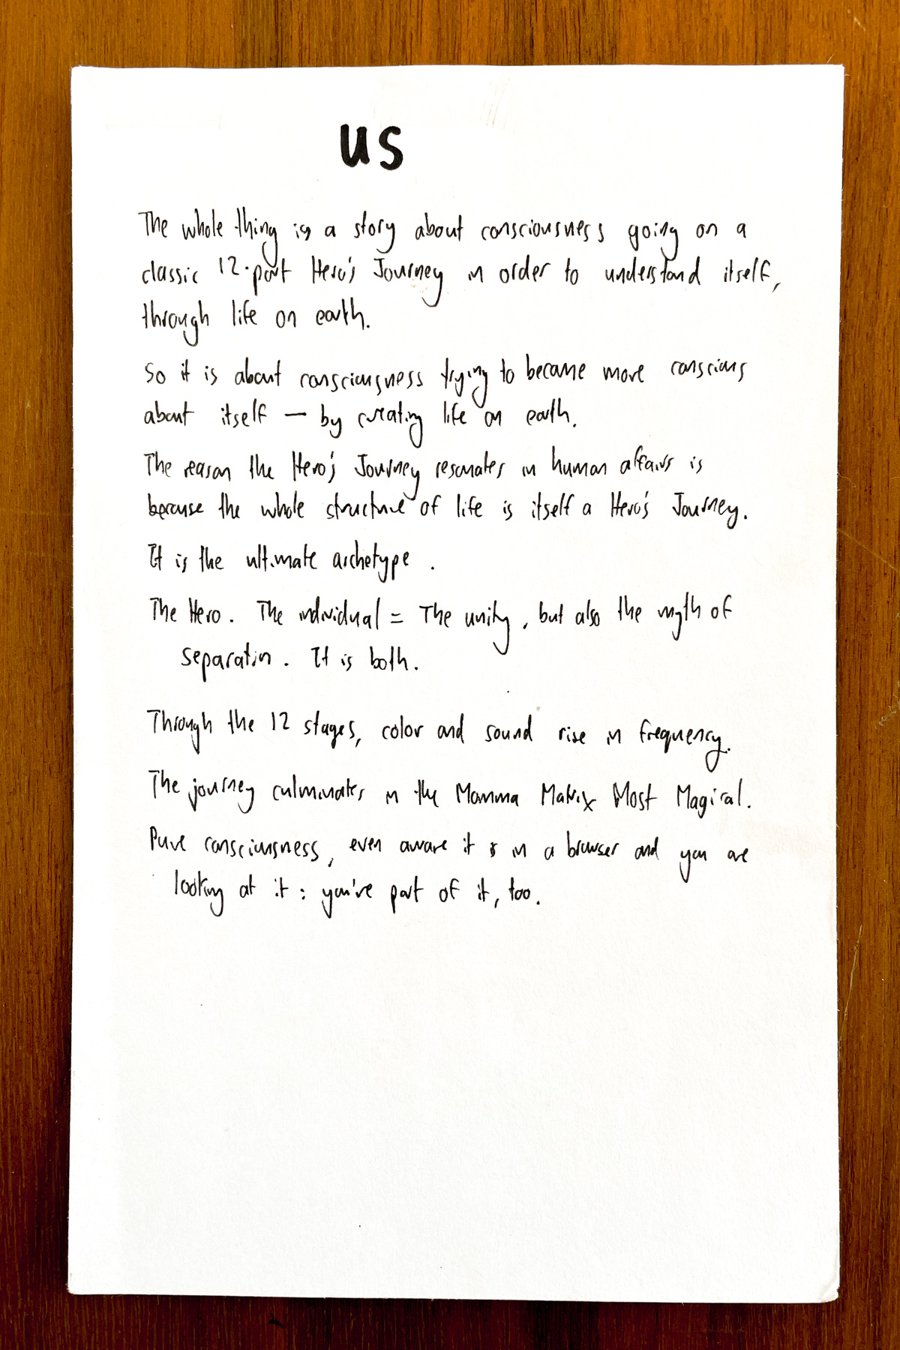 us
The whole thing is a story about consciousness going on a
classic 12-part Hero's Journey in order to understand itself,
through life on earth.
So it is about consciousness trying to become more conscious
about itself — by creating life on earth.
The reason the Hero's Journey resonates in human affairs is
because the whole structure of life is itself a Hero's Journey.
It is the ultimate archetype.
The Hero. The individual = The unity, but also the myth of
separation. It is both.
Through the 12 stages, color and sound rise in frequency.
The journey culminates in the Mamma Matrix Most Magical.
Pure consciousness, even aware it is in a browser and you are
looking at it: you're part of it, too.